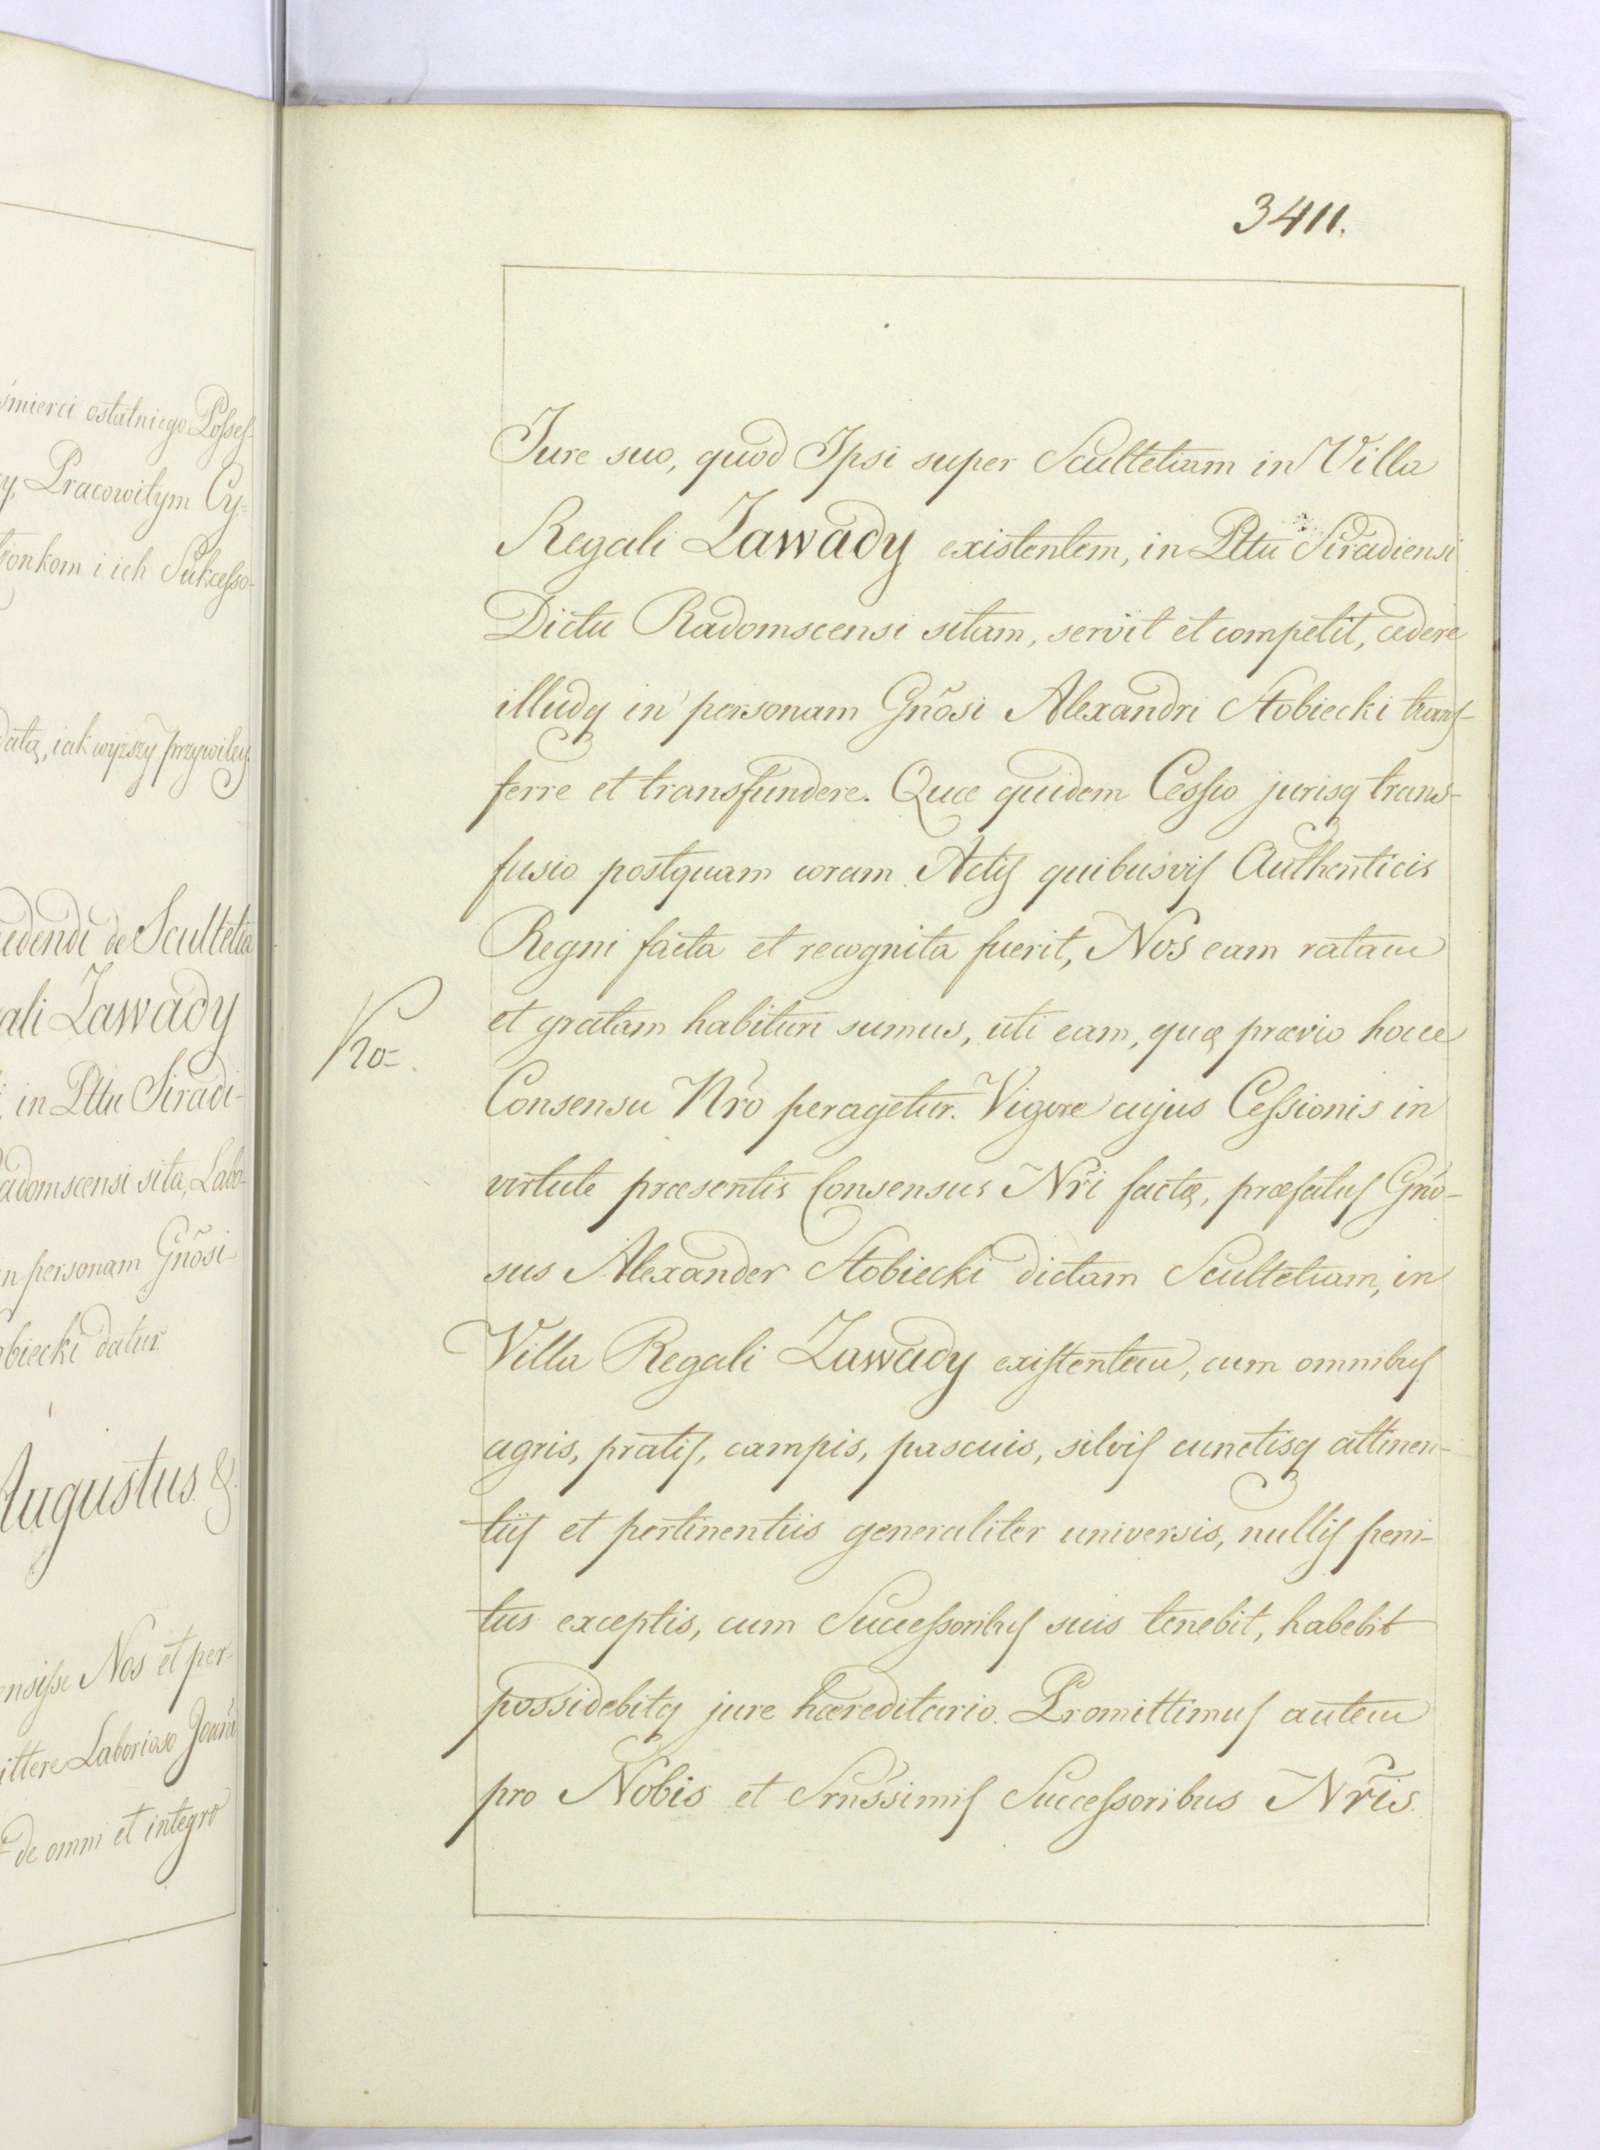 śmierci ostatniego Possess-
cy, Pracowitym Cy-
żonkom i ich Sukcesso-
datą, iak wyższy przywiley.
cedendi de Scultetia
ali Zawady
in Pttu Siradi-
adomscensi sita, Labo-
in personam Gnõsi
obiecki datur.
Augustus &.
ensisse Nos et per-
ittere Laborioso Joan̄i
de omni et integro
3411.
Jure suo, quod Ipsi super Scultetiam in Villa
Regali Zawady existentem, in Pttu Siradiensi
Dictu Radomscensi sitam, servit et competit, cedere
illudq in personam Gnõsi Alexandri Stobiecki trans-
ferre et transfundere. Quæ quidem Cessio jurisq trans-
fusio postquam coram Actis quibusvis Authenticis
Regni facta et recognita fuerit, Nos eam ratam
et gratam habituri sumus, uti eam, quæ prævio hocce
Consensu Nrõ peragetur. Vigore cujus Cessionis in
virtute præsentis Consensus Nrĩ factæ, præfatus Gnõ-
sus Alexander Stobiecki dictam Scultetiam, in
Villa Regali Zawady existentem, cum omnibus
agris, pratis, campis, pascuis, silvis cunctisq attinen-
tiis et pertinentiis generaliter universis, nullis peni-
tus exceptis, cum Successoribus suis tenebit, habebit
possidebitq jure hæreditario. Promittimus autem
pro Nobis et Srnssimis Successoribus Nrĩs